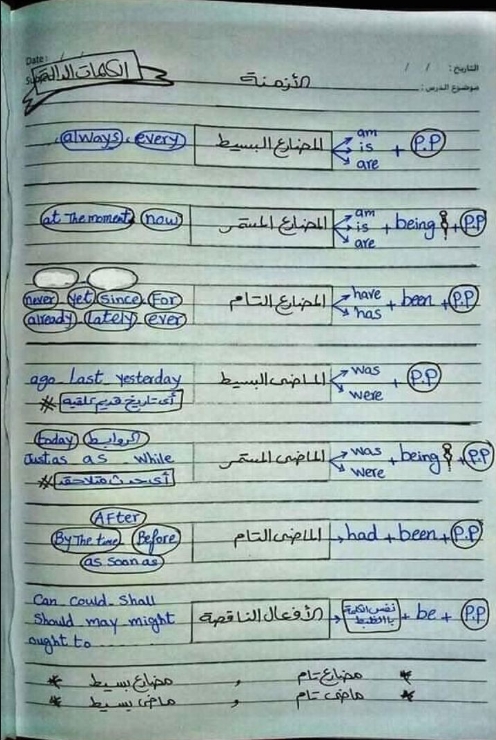 Date: / / التاريخ : / /
موضوع الدرس :
الكلمات الدالة الأزمنة
always, every المضارع البسيط am is are + P.P
at The moment, now المضارع المستمر am is are + being + P.P
never, yet, since, For
already, Lately, ever المضارع التام have has + been + P.P
ago - Last - yesterday الماضى البسيط was were + P.P
* أى تاريخ قديم تلاقيه
today, الروابط
Just as as While الماضى المستمر was were + being + P.P
*
After
By The time, Before الماضى التام had + been + P.P
as soon as
Can - Could - Shall
Should may might
ought to الأفعال الناقصة نفس الكلمة بالظبط + be + P.P
* مضارع تام , مضارع بسيط *
* ماضى تام , ماضى بسيط *